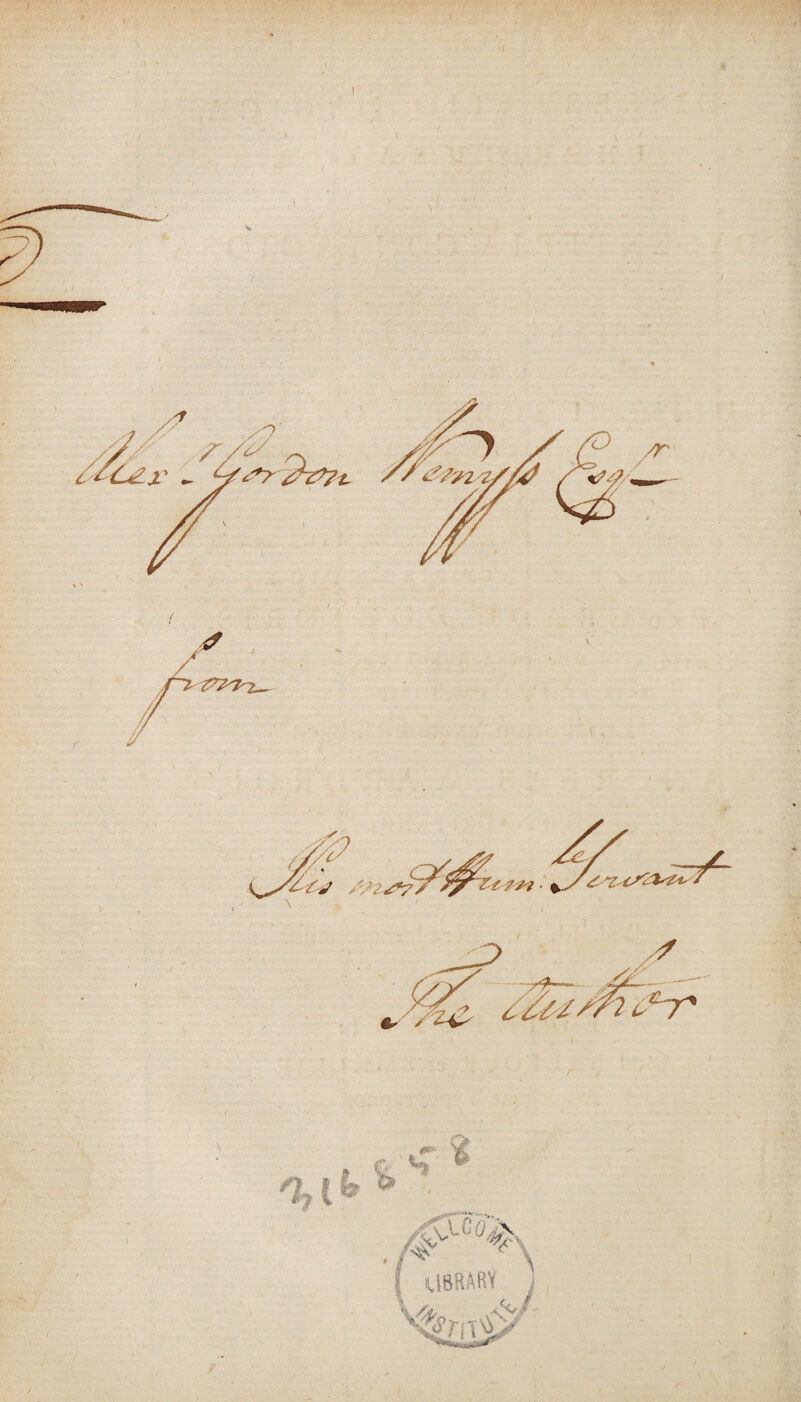 Alexr. Gordon Wemyss Esqr
from
His most Humble Servant
The Author
316858
WELLCOME
LIBRARY
INSTITUTE